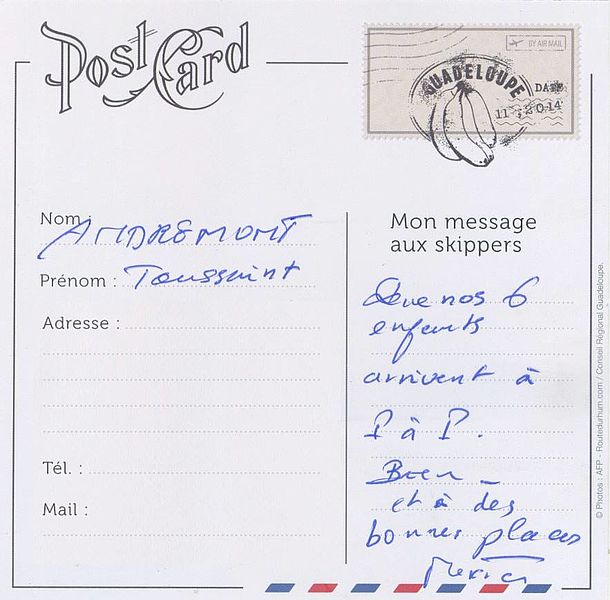 Post Card
BY AIR MAIL
GUADELOUPE
DATE
11 . 2014
Nom :
ANDREMONT
Prénom : Toussaint
Adresse :
Tél. :
Mail :
Mon message
aux skippers
Que nos 6
enfants
arrivent à
P à P.
Bien
et à des
bonnes places
Merci
© Photos : AFP - Routedurhum.com / Conseil Régional Guadeloupe.